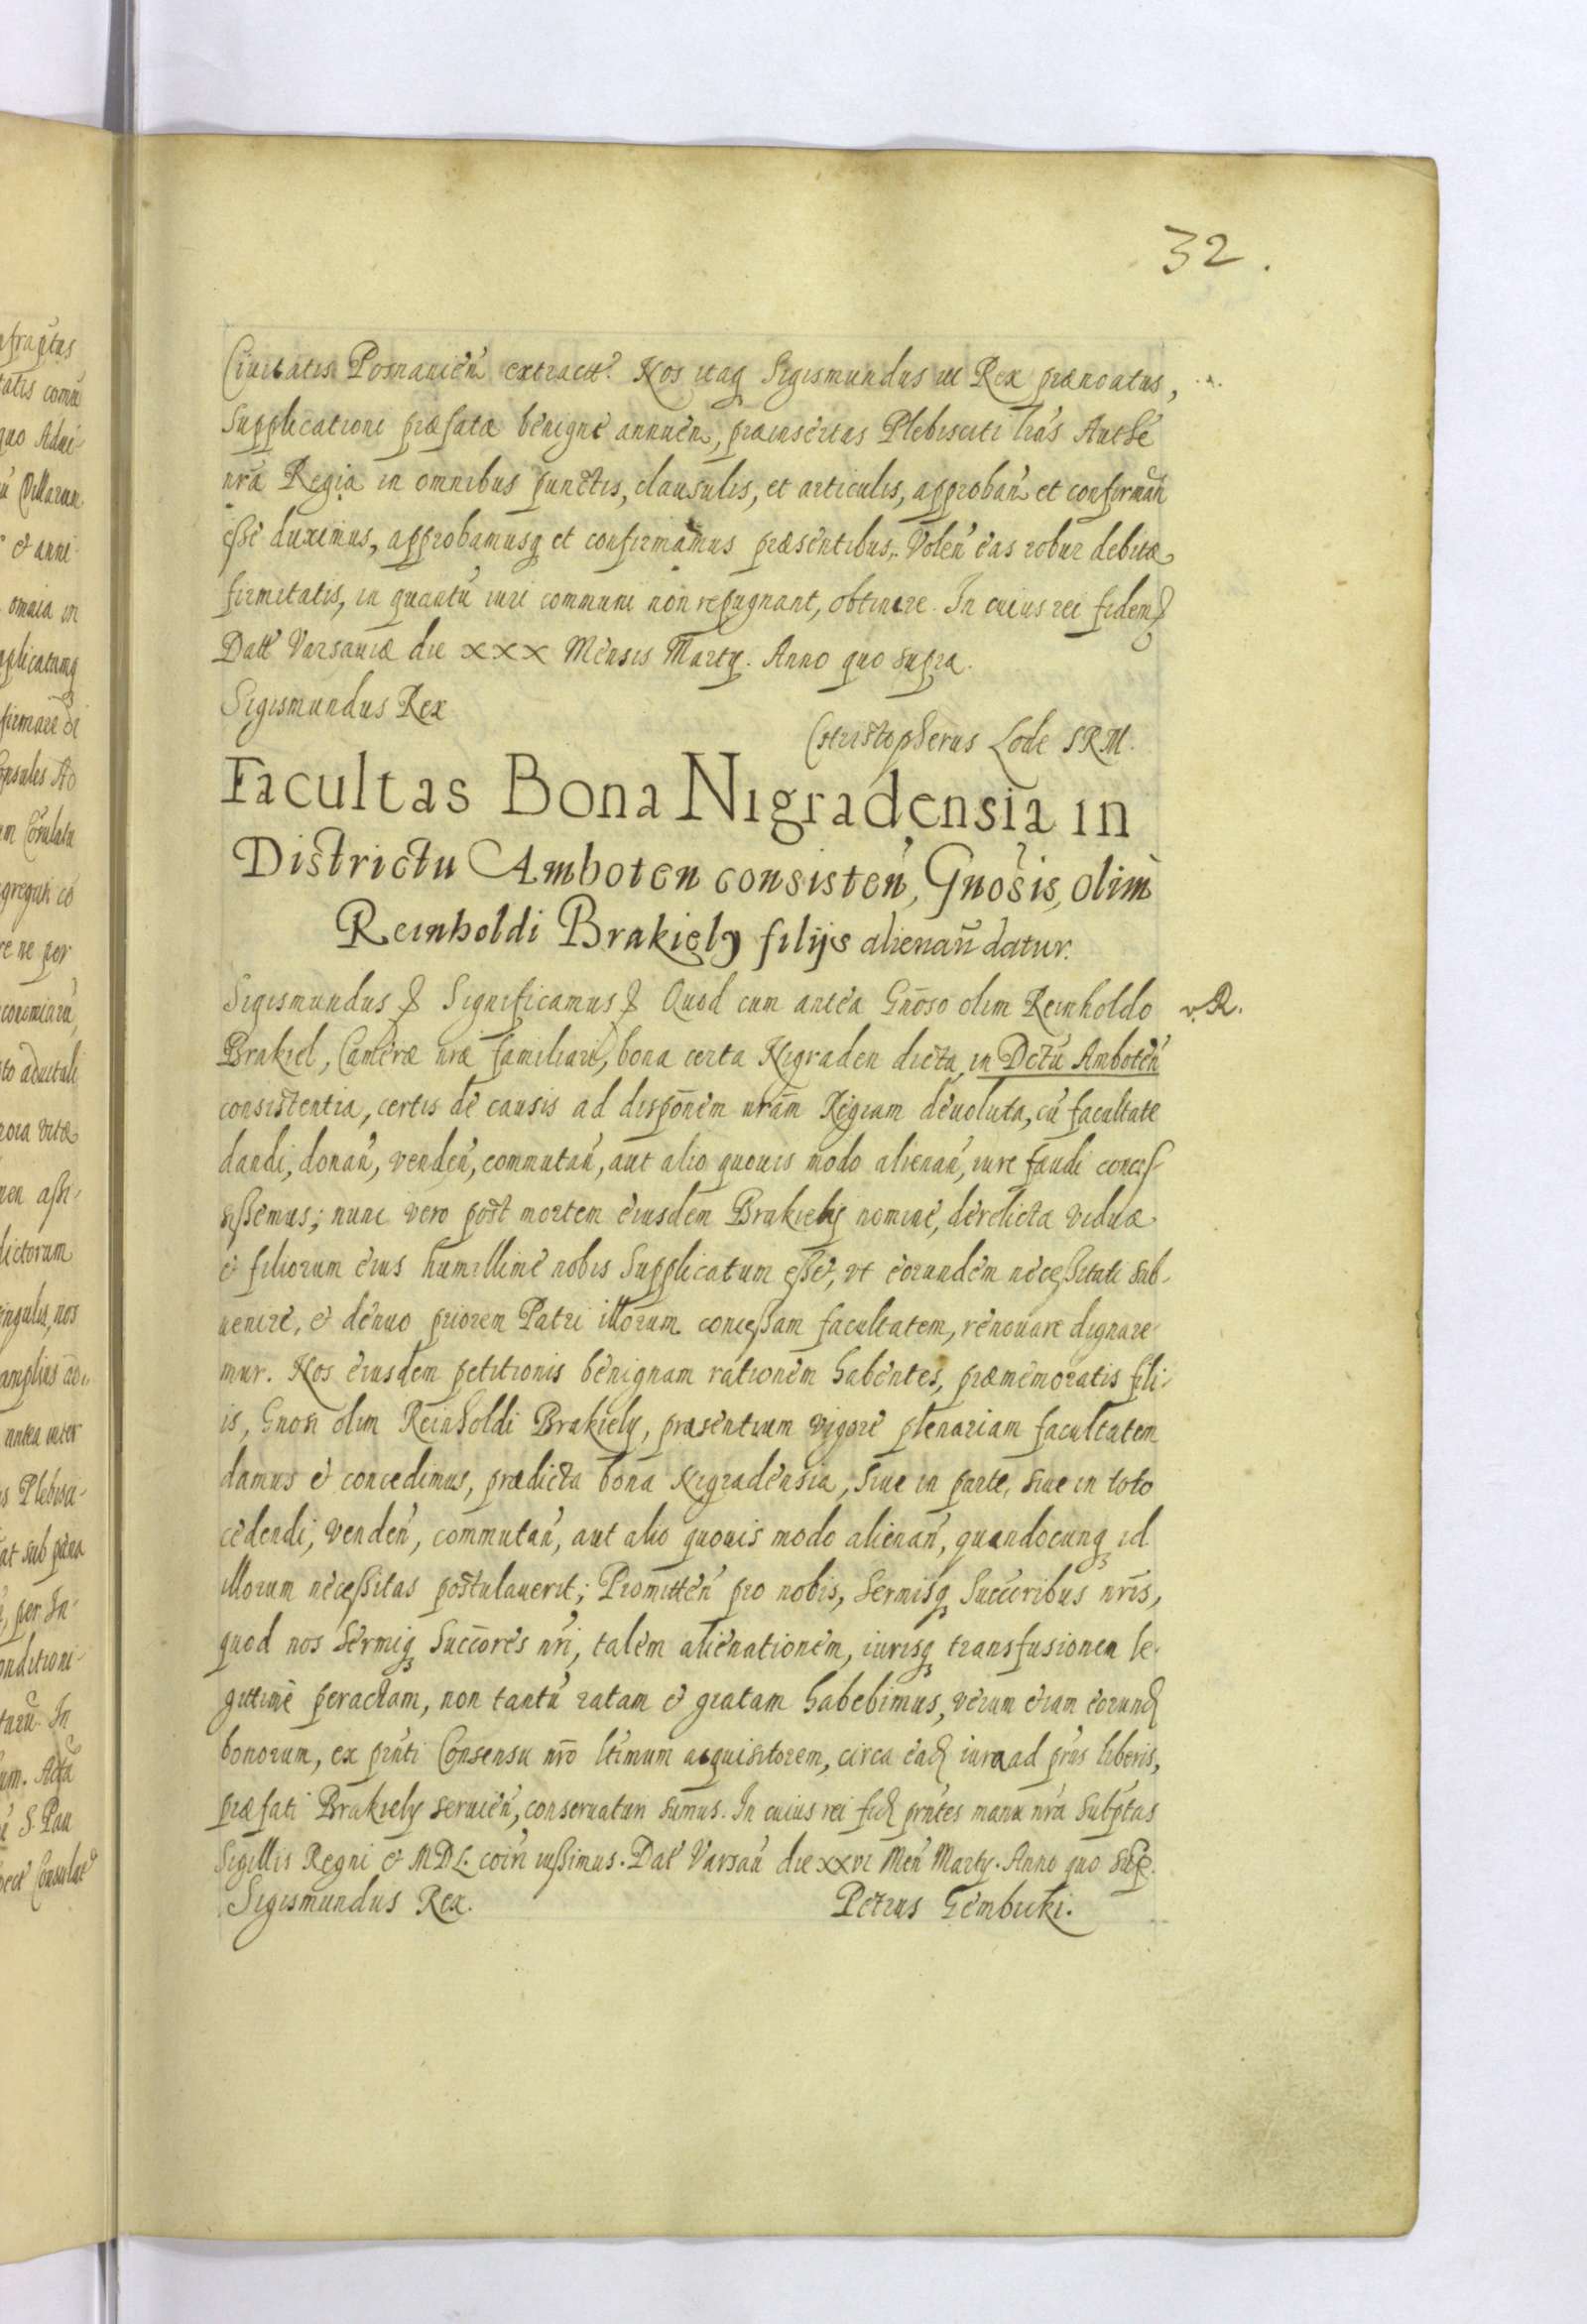 32.
Civitatis Posnanien̄ extractt. Nos itaq̨ Sigismundus III Rex prænoatus,
Supplicationi præfatæ benigne annuen̄, præinsertas Plebisciti lr̄as Autħe
nr̄a Regia in omnibus punctis, clausulis, et articulis, approban̄ et confirman̄
eßé duximus, approbamusq̨ et confirmamus præsentibus. Volen̄ eas robur debitæ
firmitatis, in quantū iuri communi non repugnant, obtinere. In cuius rei fidem
Datt Varsaviæ die XXX Mensis Martij. Anno quo supra.
Sigismundus Rex
Christopherus Lode SRM.
Facultas Bona Nigradensia in
Districtu Amboten consisten̄, Gnosis, olim
Reinholdi Brakiely filijs alienan̄ datur.
Sigismundus Significamus Quod cum antea Gn̄oso olim Reinholdo
v. R.
Brakiel, Cameræ nr̄æ familiari, bona certa Nigraden dicta in Dctū Amboten̄
consistentia, certis de causis ad dispōnem nr̄am Regiam devoluta, cū facultate
dandi, donan̄, venden̄, commutan̄, aut alio quovis modo alienan̄, iure faudi conces-
sißemus; nunc vero post mortem eiusdem Brakielij nomine, derelictæ viduæ
et filiorum eius humillime nobis Supplicatum eßet, vt eorundem neceßitati sub-
uenire, et denuo priorem Patri illorum conceßam facultatem, renovare dignare-
mur. Nos eiusdem petitionis benignam rationem habentes, præmemoratis fili-
is, Gnosi olim Reinholdi Brakiely, præsentium vigore plenariam facultatem
damus et concedimus, prædicta bona Nigradensia, siue in parte, siue in toto
cedendi, venden̄, commutan̄, aut alio quovis modo alienan̄, quandocunq̨ id
illorum neceßitas postulauerit; Promitten̄ pro nobis, Sermisq̨ Succoribus nr̄is,
quod nos Sermiq̨ Succores nr̄i, talem alienationem, iurisq̨ transfusionem le-
gittime peractam, non tantū ratam et gratam habebimus, verum etiam eorund
bonorum, ex prn̄ti Consensu nr̄o ltimum acquisitorem, circa ead iura ad pr̄us liberis,
præfati Brakiely seruien̄, conseruaturi sumus. In cuius rei fid prn̄tes manu nr̄a Subptas
Sigillis Regni et MDL. coīri iußimus. Dat Varsau die XXVI Men̄ Martij. Anno quo Sup.
Sigismundus Rex.
Petrus Gembicki.